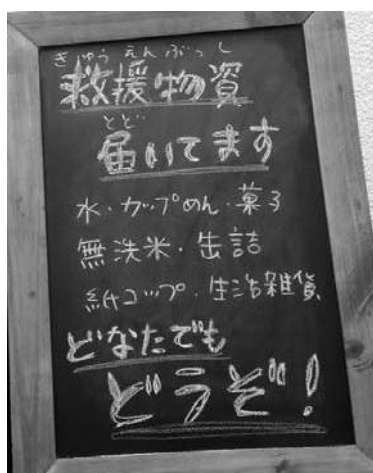 きゅうえんぶっし
救援物資
とど
届いてます
水・カップめん・菓子
無洗米・缶詰
紙コップ・生活雑貨
どなたでも
どうぞ!